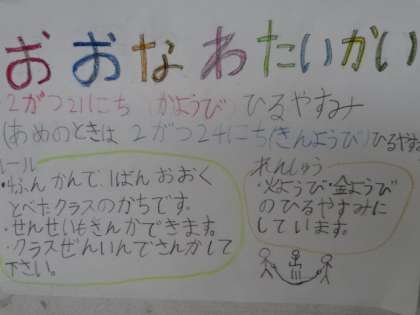 おおなわたいかい
2がつ21にち(かようび)ひるやすみ
(あめのときは2がつ24にち(きんようび)ひるやすみ
ルール
・4ふんかんで、1ばんおおく
とべたクラスのかちです。
・せんせいもさんかできます。
・クラスぜんいんでさんかして
下さい。
れんしゅう
・火ようび・金ようび
のひるやすみに
しています。